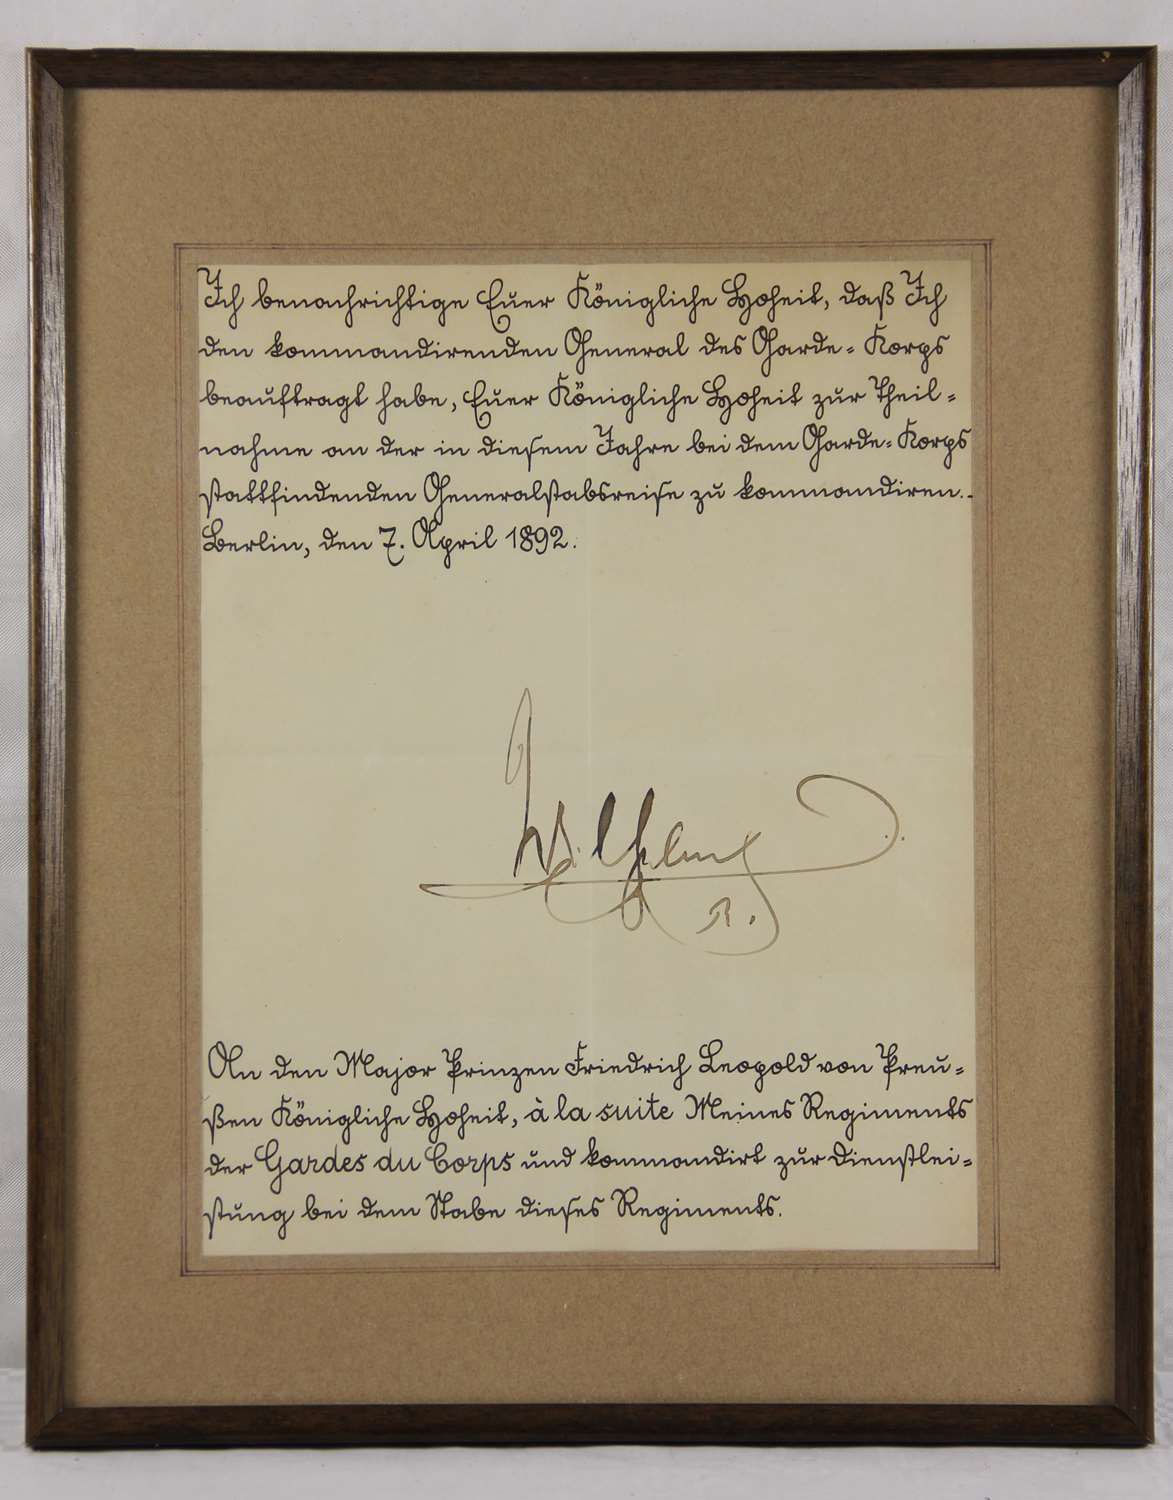 Ich benachrichtige Euer Königliche Hoheit, daß Ich
den kommandirenden General des Garde-Korps
beauftragt habe, Euer Königliche Hoheit zur Theil-
nahme an der in diesem Jahre bei dem Garde-Korps
stattfindenden Generalstabsreise zu kommandiren.
Berlin, den 7. April 1892.
Wilhelm
R.
An den Major Prinzen Friedrich Leopold von Preu-
ßen Königliche Hoheit, à la suite Meines Regiments
der Gardes du Corps und kommandirt zur Dienstlei-
stung bei dem Stabe dieses Regiments.